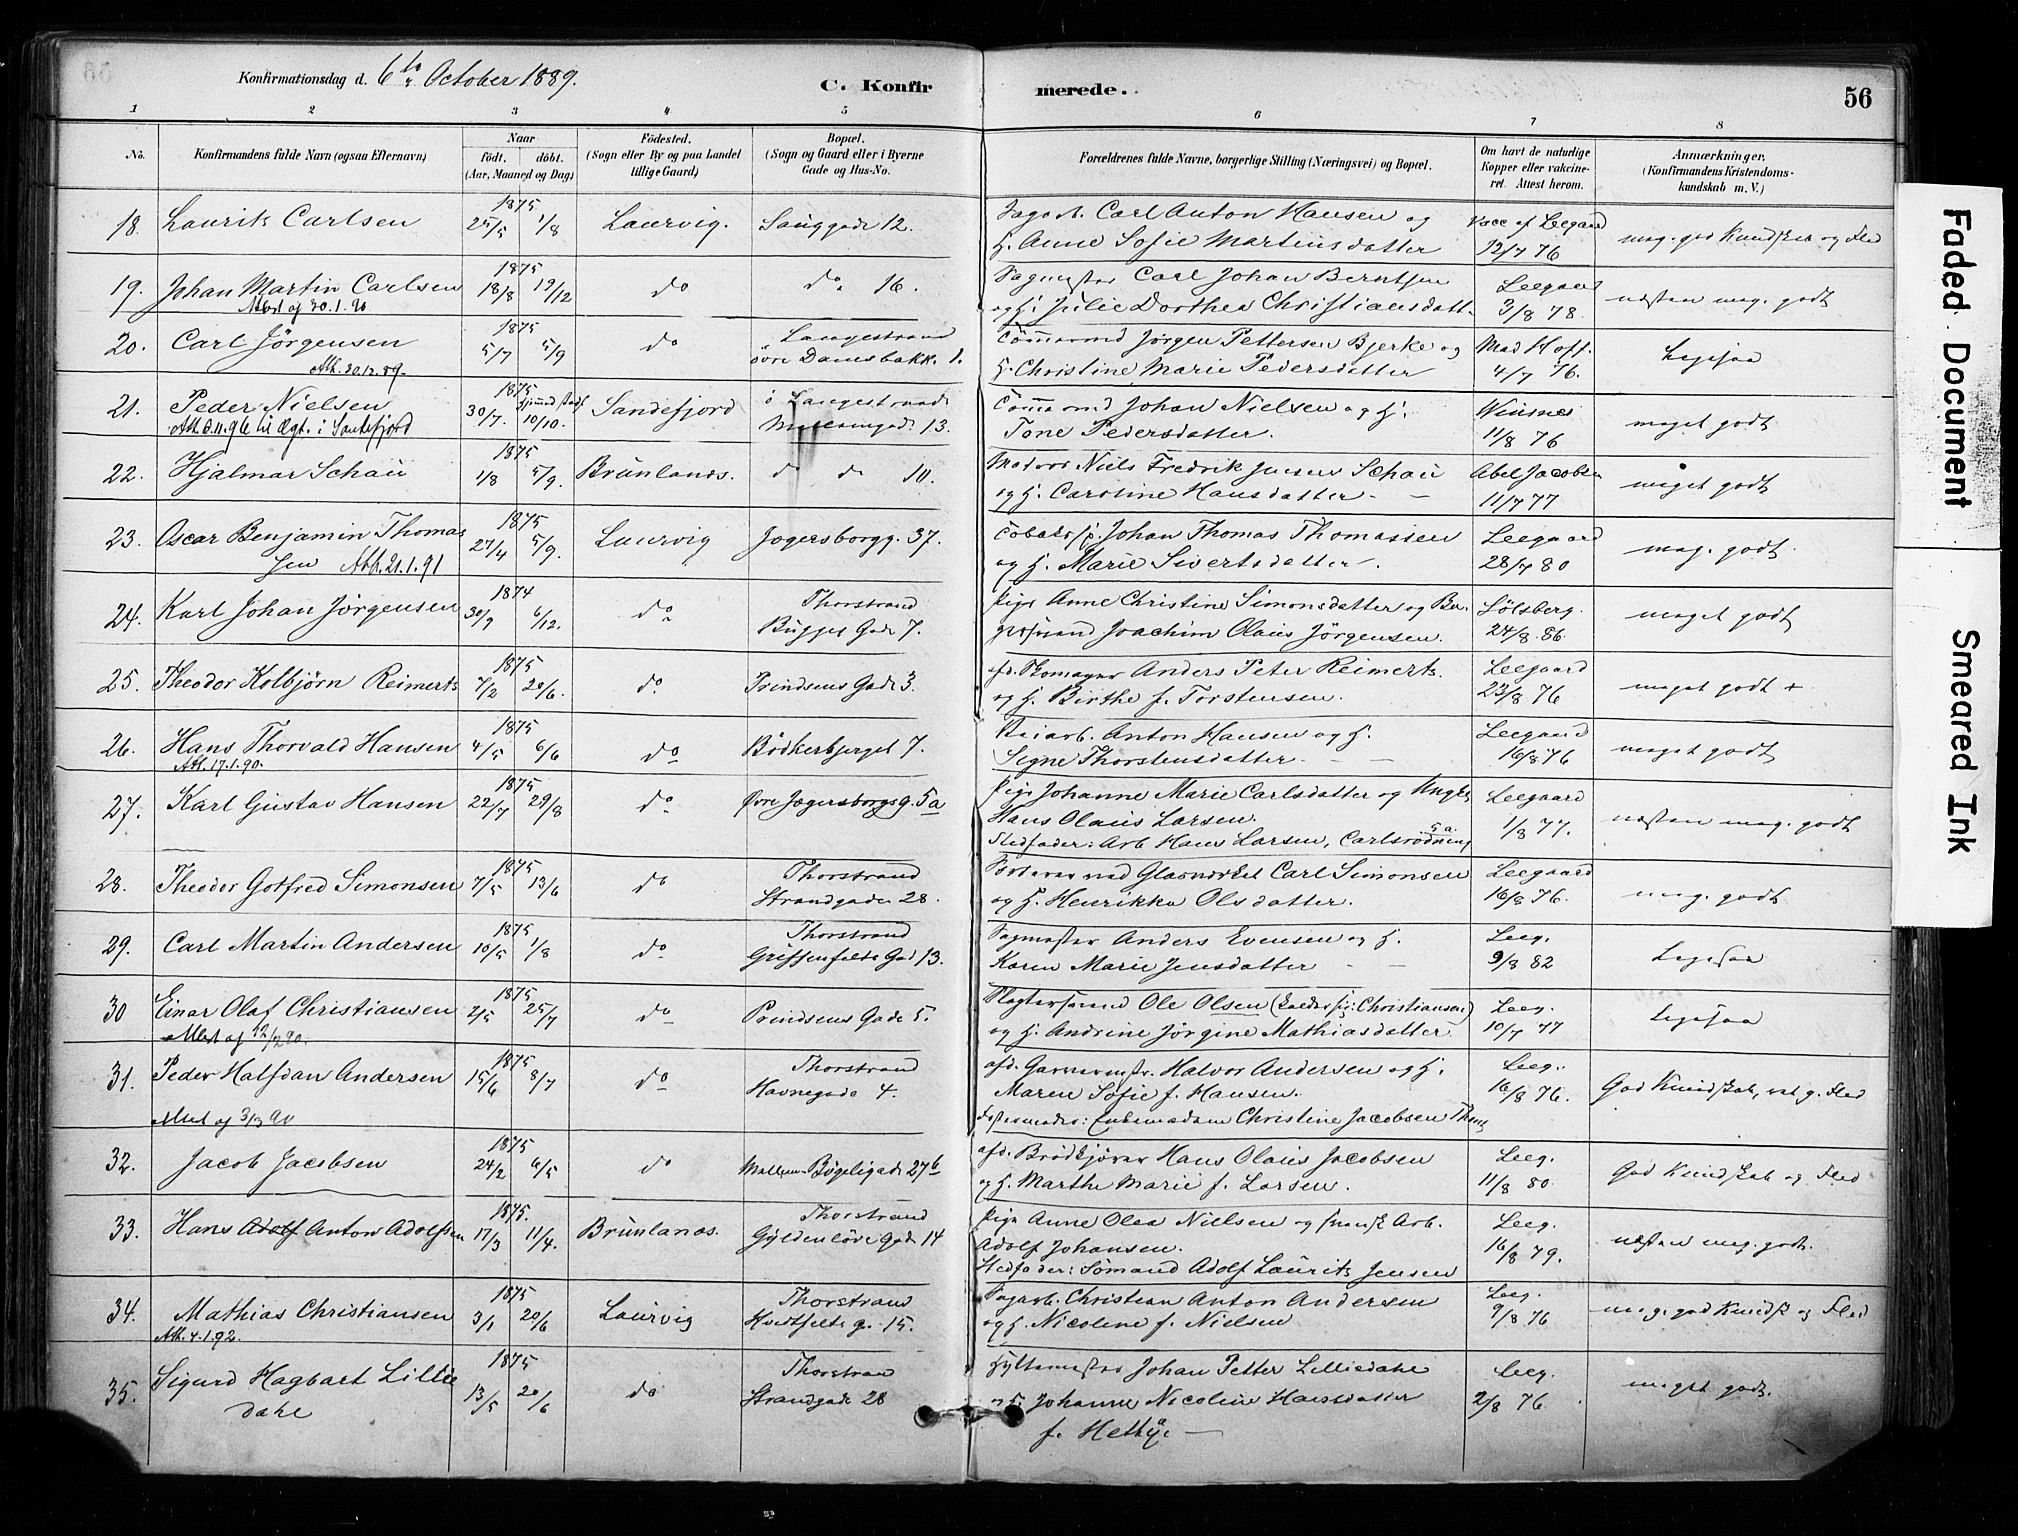 Konfirmationsdag d. 6te October 1889.
C. Konfir merede.
56
1 2 3 4 5 6 7 8
No.
Konfirmandens fulde Navn (ogsaa Efternavn)
Naar
født. døbt.
(Aar, Maaned og Dag)
Fødested.
(Sogn eller By og paa Landet
tillige Gaard)
Bopæl.
(Sogn og Gaard eller i Byerne
Gade og Hus-No.
Forældrenes fulde Navne, borgerlige Stilling (Næringsvei) og Bopæl.
Om havt de naturlige
Kopper eller vakcine-
ret. Attest herom.
Anmærkninger.
(Konfirmandens Kristendoms-
kundskab m. V.)
18. Laurits Carlsen 1875 25/5 1/8 Laurvig. 12.
Carl Anton Hansen og
H. Anne Sofie Martinsdatter
Vacc af Leegaard 12/7 76
meg. god Kundskab og Flid
19. Johan Martin Carlsen 1875 18/8 19/12 do do 16.
Attest af 20.1.90
Sagmester Carl Johan Berntsen
og H. Julie Dorthea Christiansdatt.
Leegaard 3/8 78.
næsten meg. godt
20. Carl Jørgensen 1875 5/7 5/9 do Langestrand
øvre Danebakk. 1.
Att. 20.12.89.
Tømmermd Jørgen Pettersen Bjerke og
H. Christine Marie Pedersdatter
Mad Hoff. 4/7 76.
Ligesaa
21. Peder Nielsen 1875 30/7. Hjemmed. 10/10. Sandefjord Langestrand
13.
Att 8.11.96 til Ægt. i Sandefjord
Tømmermd Johan Nielsen og H.
Tone Pedersdatter.
Winsnes 11/8 76
meget godt
22. Hjalmar Schau 1875 1/8 5/9. Brunlanes. do do 10.
Matros Niels Fredrik Jensen Schau
og H. Caroline Hansdatter. —
Abel Jacobsen 11/7 77
meget godt
23. Oscar Benjamin Thomas
sen Att. 21.1.91 1875 27/4 5/9. Laurvig Jægersborgg. 37.
Johan Thomas Thomassen
og H. Marie Sivertsdatter.
Leegaard 28/7 80
meg. godt.
24. Karl Johan Jørgensen 1874 30/9 6/12. do Thorstrand
Bugges Gade 7.
Pige Anne Christine Simonsdatter og
Joachim Olaus Jørgensen.
Sølsberg. 24/8. 86.
meget godt
25. Theodor Kolbjørn Reimerts 1875 7/2 20/6. do Prindsens Gade 3.
afd. Skomager Anders Peter Reimerts
og H. Birthe f. Torstensen.
Leegaard 23/8 76
meget godt +
26. Hans Thorvald Hansen 1875 4/5 6/6 do Bødkerbjerget 7.
Att. 17.1.90.
Anton Hansen og H.
Signe Thorstensdatter. — —
Leegaard 16/8 76
meget godt
27. Karl Gustav Hansen 1875 22/7 29/8 do Øvre Jægersborgsg. 5a
Pige Johanne Marie Carlsdatter og Ungk.
Hans Olaus Larsen.
Stedfader: Arb Hans Larsen, Carlsrødning 5a.
Leegaard 1/8 77.
næsten meg. godt
28. Theodor Gotfred Simonsen 1875 7/5 13/6 do Thorstrand
Strandgade 28.
ved Glasværket Carl Simonsen
og H. Henrikka Olsdatter.
Leegaard 16/8 76.
meg. godt
29. Carl Martin Andersen 1875 10/5 1/8 do Thorstrand
Griffenfelts Gad 13.
Sagmester Anders Evensen og H.
Karen Marie Jensdatter — —
Leeg. 9/8 82
Ligesaa
30 Einar Olaf Christiansen 1875 2/5 25/7 do Prindsens Gade 5.
Attest af 22/2 90.
Slagtersvend Ole Olsen (kalder sig: Christiansen)
og H. Andrine Jørgine Mathiasdatter.
Leeg. 10/7 77
Ligesaa
31. Peder Halfdan Andersen 1875 15/6 8/7 do Thorstrand
Havnegade 4.
Attest af 3/3 90
afd. Garvermstr. Halvor Andersen og H.
Maren Sofie f. Hansen.
Fostermoder: Enkemadam Christine Jacobsen
Leeg. 16/8 76.
God Kundskab, vel g. Flid
32. Jacob Jacobsen 1875 24/2 6/5 do Mellem-Bøgeligade 27b
afd. Brødkjører Hans Olaus Jacobsen
og H. Marthe Marie f. Larsen.
Leeg. 11/8 80.
God Kundskab og Flid
33. Hans Adolf Anton Adolfsen 1875. 17/3 11/4. Brunlanes. Thorstrand
Gyldenløve Gade 14
Pige Anne Olea Nielsen og svensk Arb.
Adolf Johansen.
Stedfader: Sømand Adolf Laurits Jensen
Leeg. 16/8 79.
næsten meg. godt.
34. Mathias Christiansen 1875 3/1 20/6 Laurvig Thorstrand
Hvidtfeltsg. 15.
Att. 4.1.92.
Sagarb. Christian Anton Andersen
og H. Nicoline f. Nielsen
Leeg. 9/8 76
meg. god Kundsk og Flid
35. Sigurd Hagbart Lillie
dahl 1875 13/5 20/6 do Thorstran
Strandgade 28
Hyttemester Johan Petter Lilliedahl
og H. Johanne Nicoline Hansdatter
f. Hetty. —
Leeg. 2/8 76
meget godt.
Faded Document
Smeared Ink